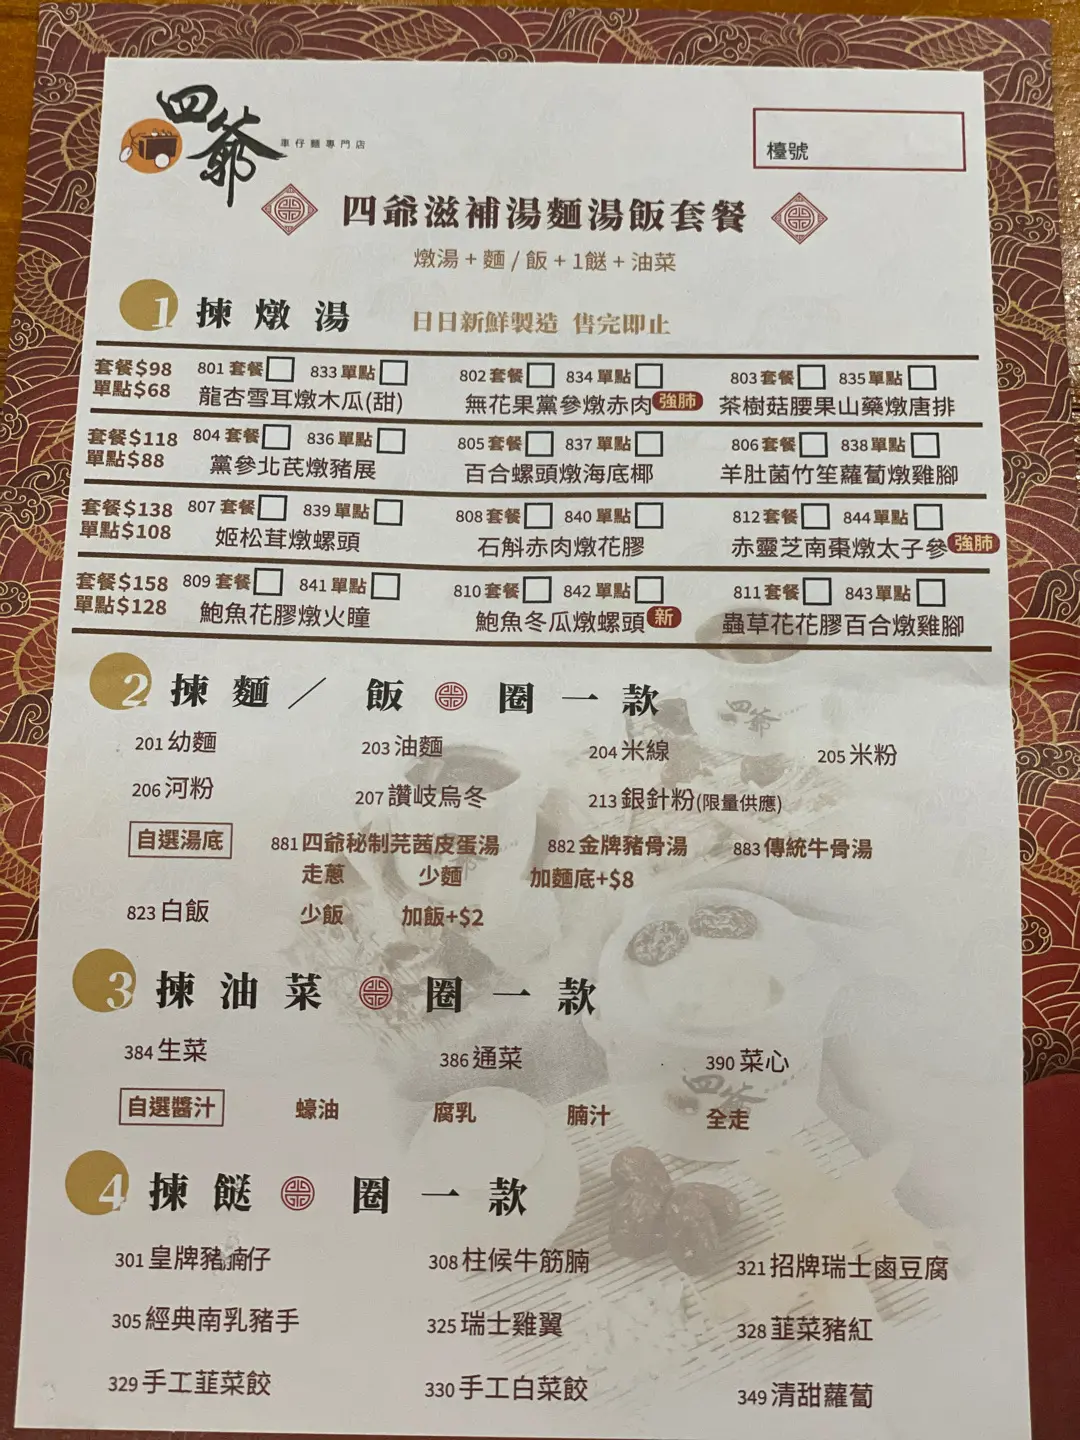 四爺
車仔麵專門店
檯號
四爺滋補湯麵湯飯套餐
燉湯 + 麵 / 飯 + 1餸 + 油菜
1 揀燉湯 日日新鮮製造 售完即止
套餐$98 801 套餐 833 單點 802 套餐 834 單點 803 套餐 835 單點
單點$68 龍杏雪耳燉木瓜(甜) 無花果黨參燉赤肉 強肺 茶樹菇腰果山藥燉唐排
套餐$118 804 套餐 836 單點 805 套餐 837 單點 806 套餐 838 單點
單點$88 黨參北芪燉豬展 百合螺頭燉海底椰 羊肚菌竹笙蘿蔔燉雞腳
套餐$138 807 套餐 839 單點 808 套餐 840 單點 812 套餐 844 單點
單點$108 姬松茸燉螺頭 石斛赤肉燉花膠 赤靈芝南棗燉太子參 強肺
套餐$158 809 套餐 841 單點 810 套餐 842 單點 811 套餐 843 單點
單點$128 鮑魚花膠燉火瞳 鮑魚冬瓜燉螺頭 新 蟲草花花膠百合燉雞腳
2 揀麵／飯 圈一款
201 幼麵 203 油麵 204 米線 205 米粉
206 河粉 207 讚岐烏冬 213 銀針粉(限量供應)
自選湯底 881 四爺秘制芫茜皮蛋湯 882 金牌豬骨湯 883 傳統牛骨湯
走蔥 少麵 加麵底+$8
823 白飯 少飯 加飯+$2
3 揀油菜 圈一款
384 生菜 386 通菜 390 菜心
自選醬汁 蠔油 腐乳 腩汁 全走
4 揀餸 圈一款
301 皇牌豬腩仔 308 柱候牛筋腩 321 招牌瑞士鹵豆腐
305 經典南乳豬手 325 瑞士雞翼 328 韮菜豬紅
329 手工韮菜餃 330 手工白菜餃 349 清甜蘿蔔